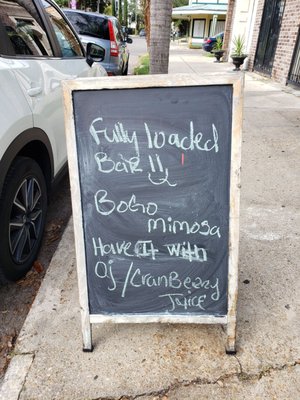 Fully loaded
Bar !!
BoGo
mimosa
Have It with
OJ/CranBerry
Juice